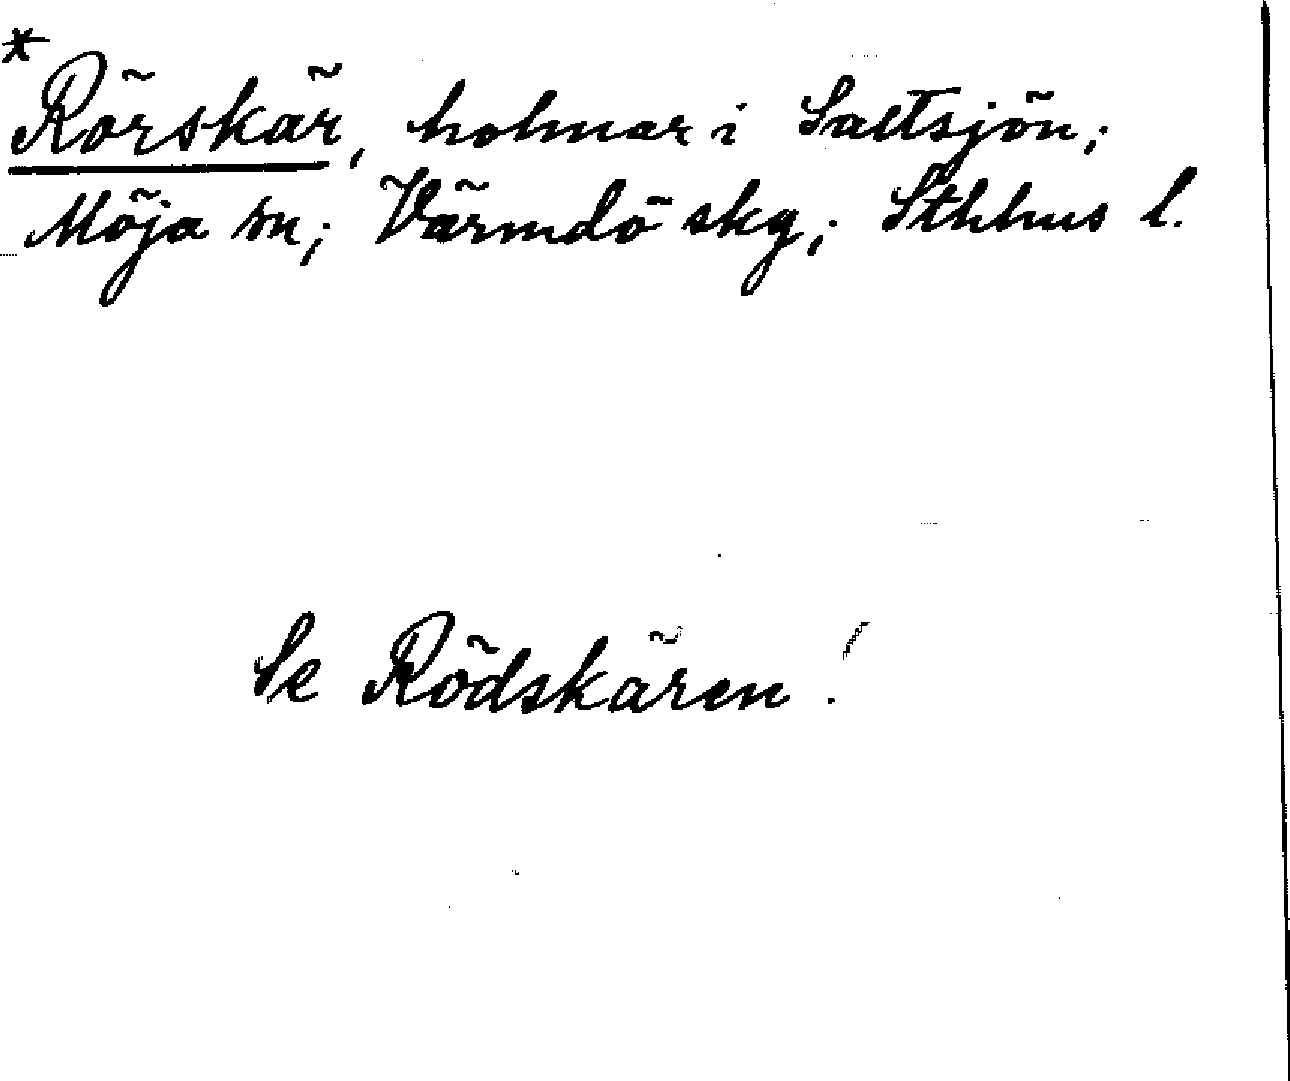 *Rörskär, holmar i Saltsjön;
Möja sn; Värmdö skg; Sthlms l.
Se Rödskären!